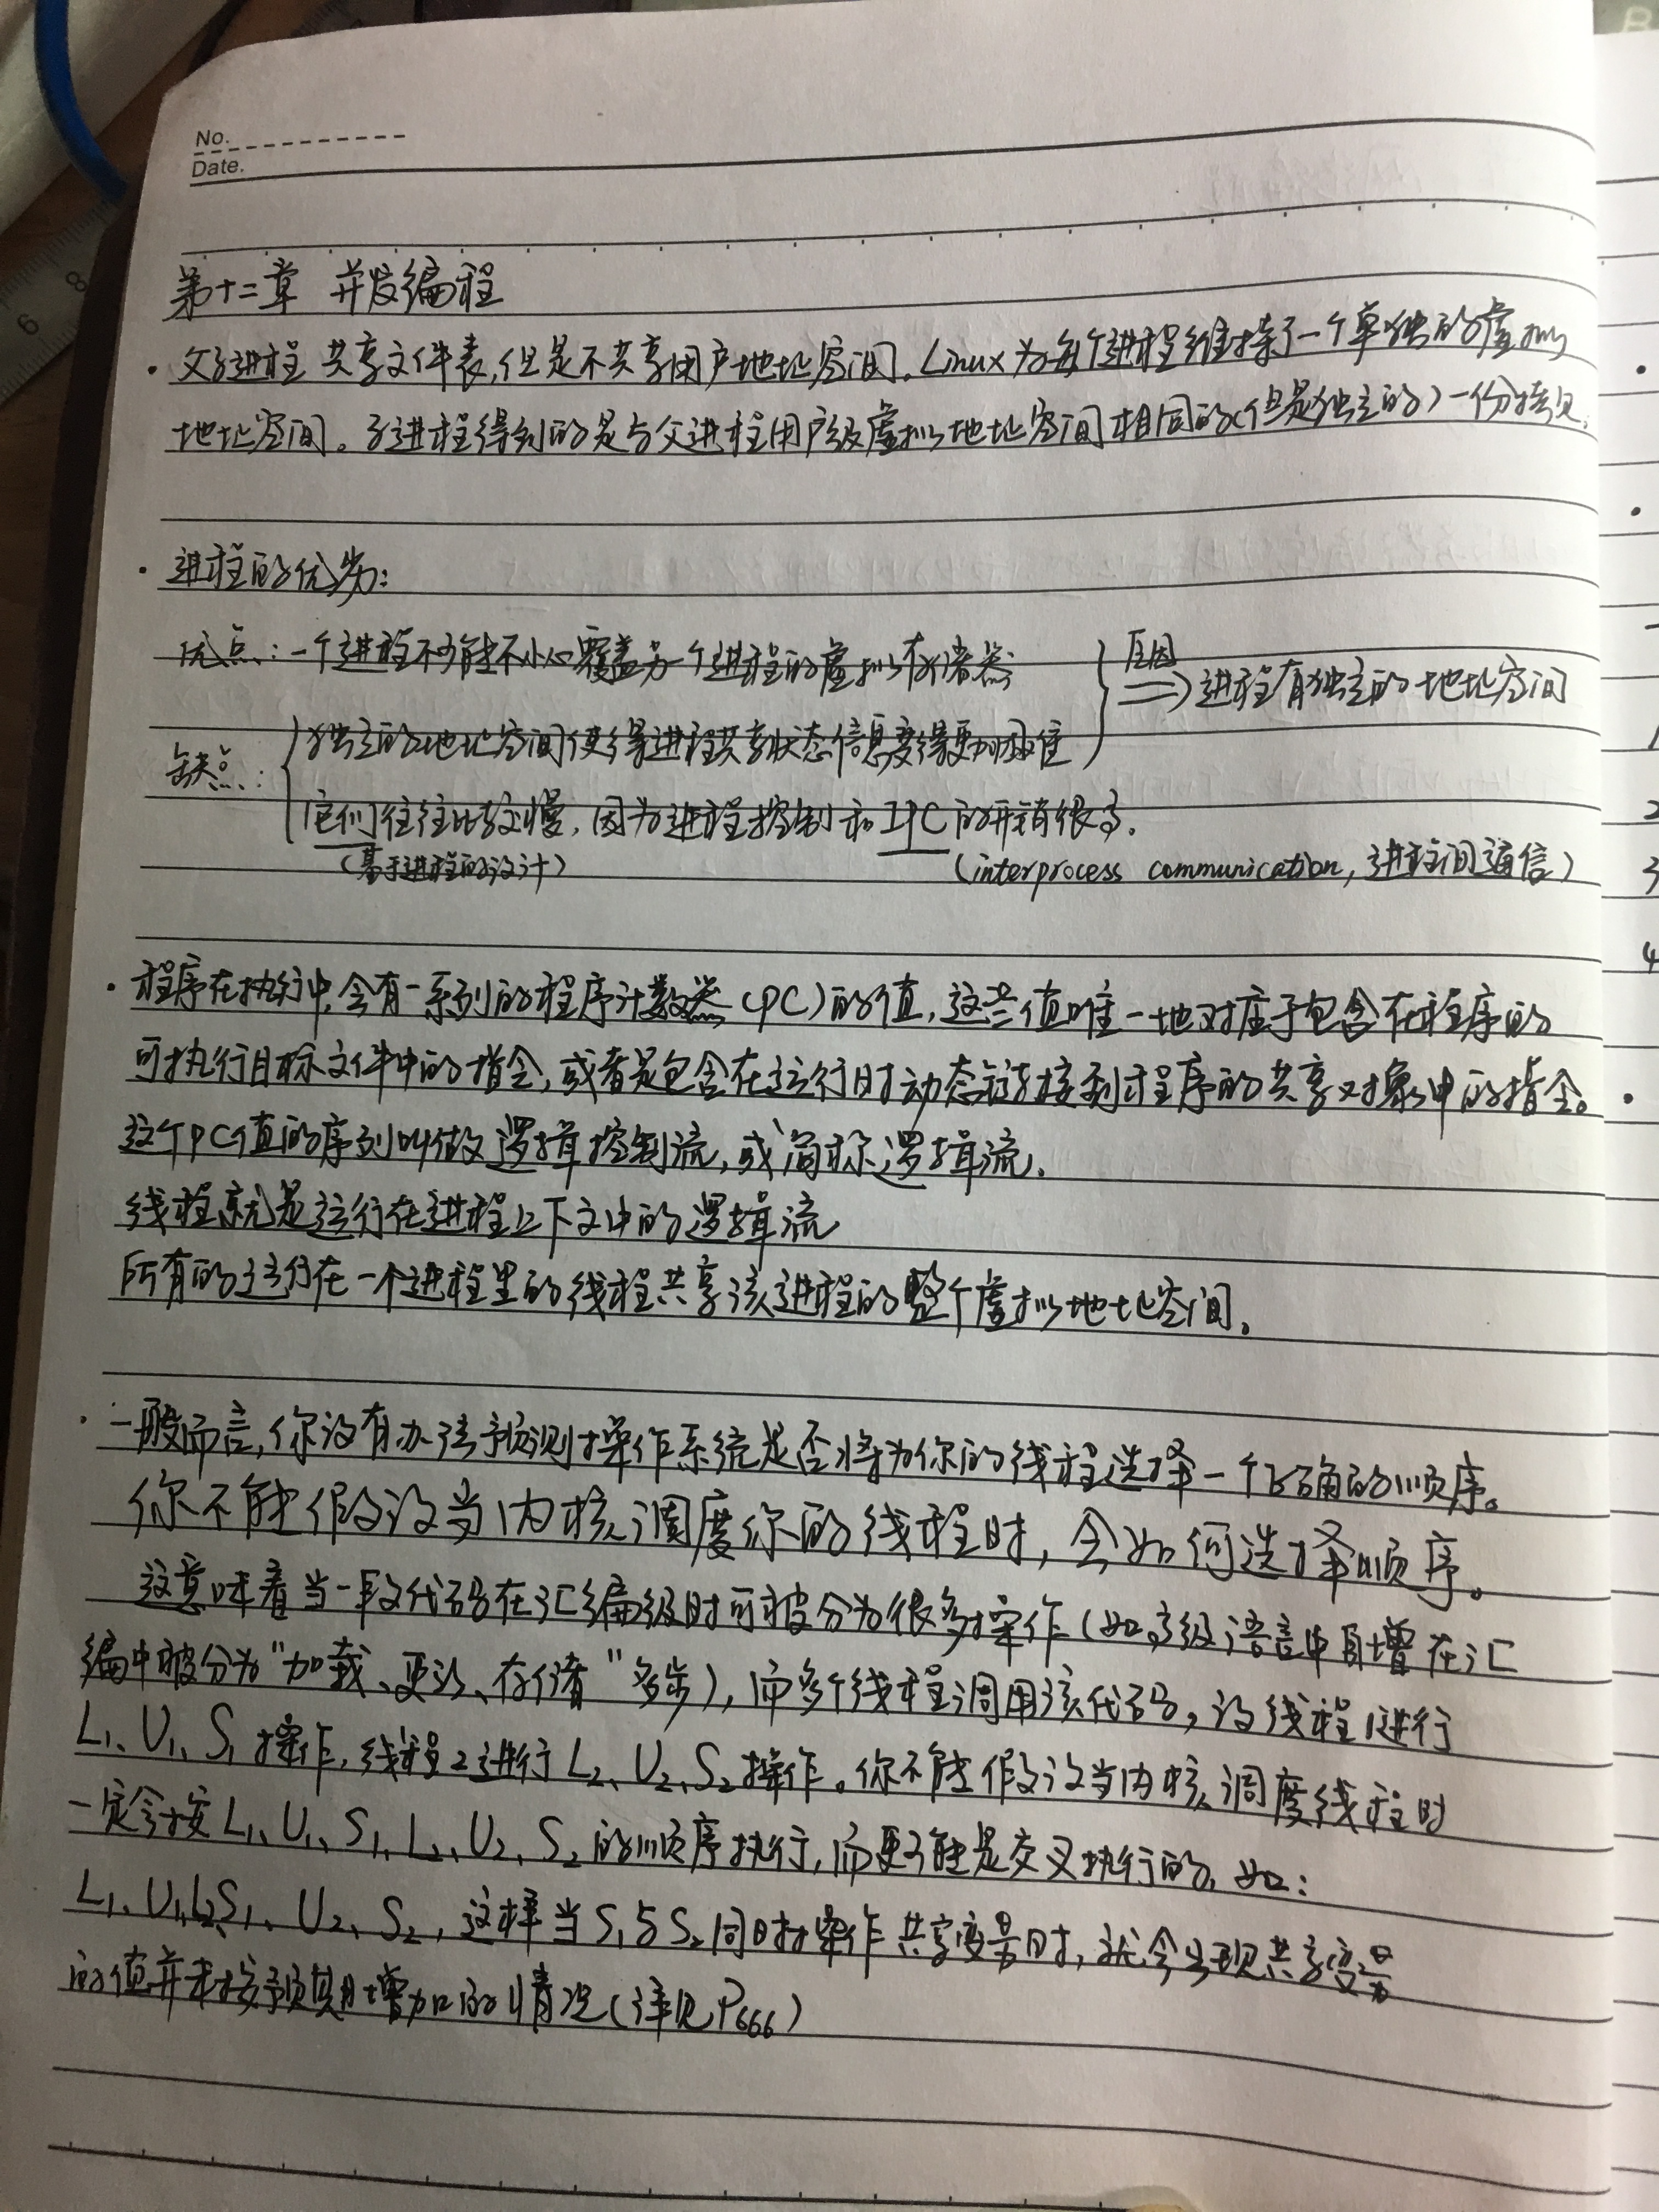 No.
Date.
第十二章 并发编程
· 父子进程共享文件表,但是不共享用户地址空间。Linux为每个进程维持了一个单独的虚拟
地址空间。子进程得到的是与父进程用户级虚拟地址空间相同的(但是独立的)一份拷贝。
· 进程的优劣:
优点:一个进程不可能不小心覆盖另一个进程的虚拟存储器
原因
⇒ 进程有独立的地址空间
缺点:
独立的地址空间使得进程共享状态信息变得更加困难
它们往往比较慢,因为进程控制和IPC的开销很高.
(基于进程的设计)
(interprocess communication,进程间通信)
· 程序在执行中,会有一系列的程序计数器(PC)的值,这些值唯一地对应于包含在程序的
可执行目标文件中的指令,或者是包含在运行时动态链接到程序的共享对象中的指令。
这个PC值的序列叫做逻辑控制流,或简称逻辑流.
线程就是运行在进程上下文中的逻辑流
所有的运行在一个进程里的线程共享该进程的整个虚拟地址空间。
· 一般而言,你没有办法预测操作系统是否将为你的线程选择一个正确的顺序。
你不能假设当内核调度你的线程时,会如何选择顺序。
这意味着当一段代码在汇编级时可被分为很多操作(如高级语言中自增在汇
编中被分为"加载、更新、存储"多步),而多个线程调用该代码,设线程1进行
L₁、U₁、S₁操作,线程2进行L₂、U₂、S₂操作。你不能假设当内核调度线程时
一定会按L₁、U₁、S₁、L₂、U₂、S₂的顺序执行,而更可能是交叉执行的,如:
L₁、U₁、L₂、S₁、U₂、S₂,这样当S₁与S₂同时操作共享变量时,就会出现共享变量
的值并未按预期增加的情况(详见P₆₆₆)